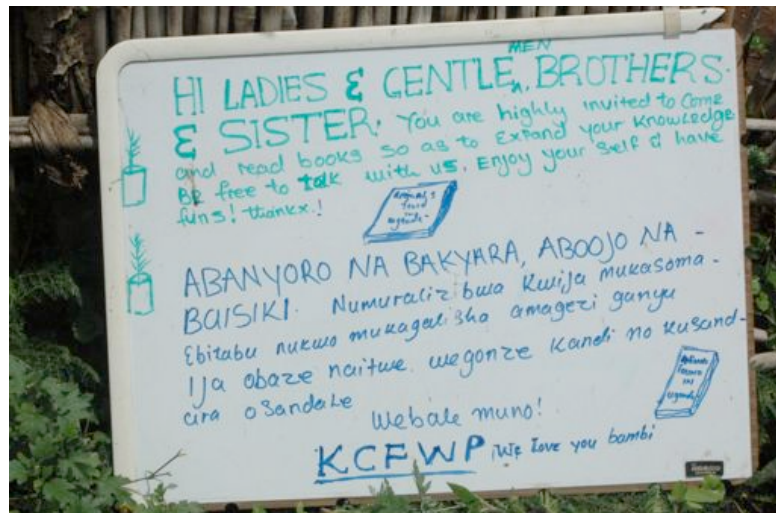 HI LADIES & GENTLEMEN, BROTHERS.
& SISTER. You are highly invited to come
and read books so as to Expand your Knowledge
BE free to talk with us. Enjoy your self & have
funs! thankx.!
ABANYORO NA BAKYARA, ABOOJO NA -
BAISIKI. Numuralizibwa Kwija mukasoma -
Ebitabu nukwo mukagalisha amagezi ganyu
Ija obaze naitwe wegonze Kandi no kusand-
cira osandale
Webale muno!
KCFWP , We Love you bambi